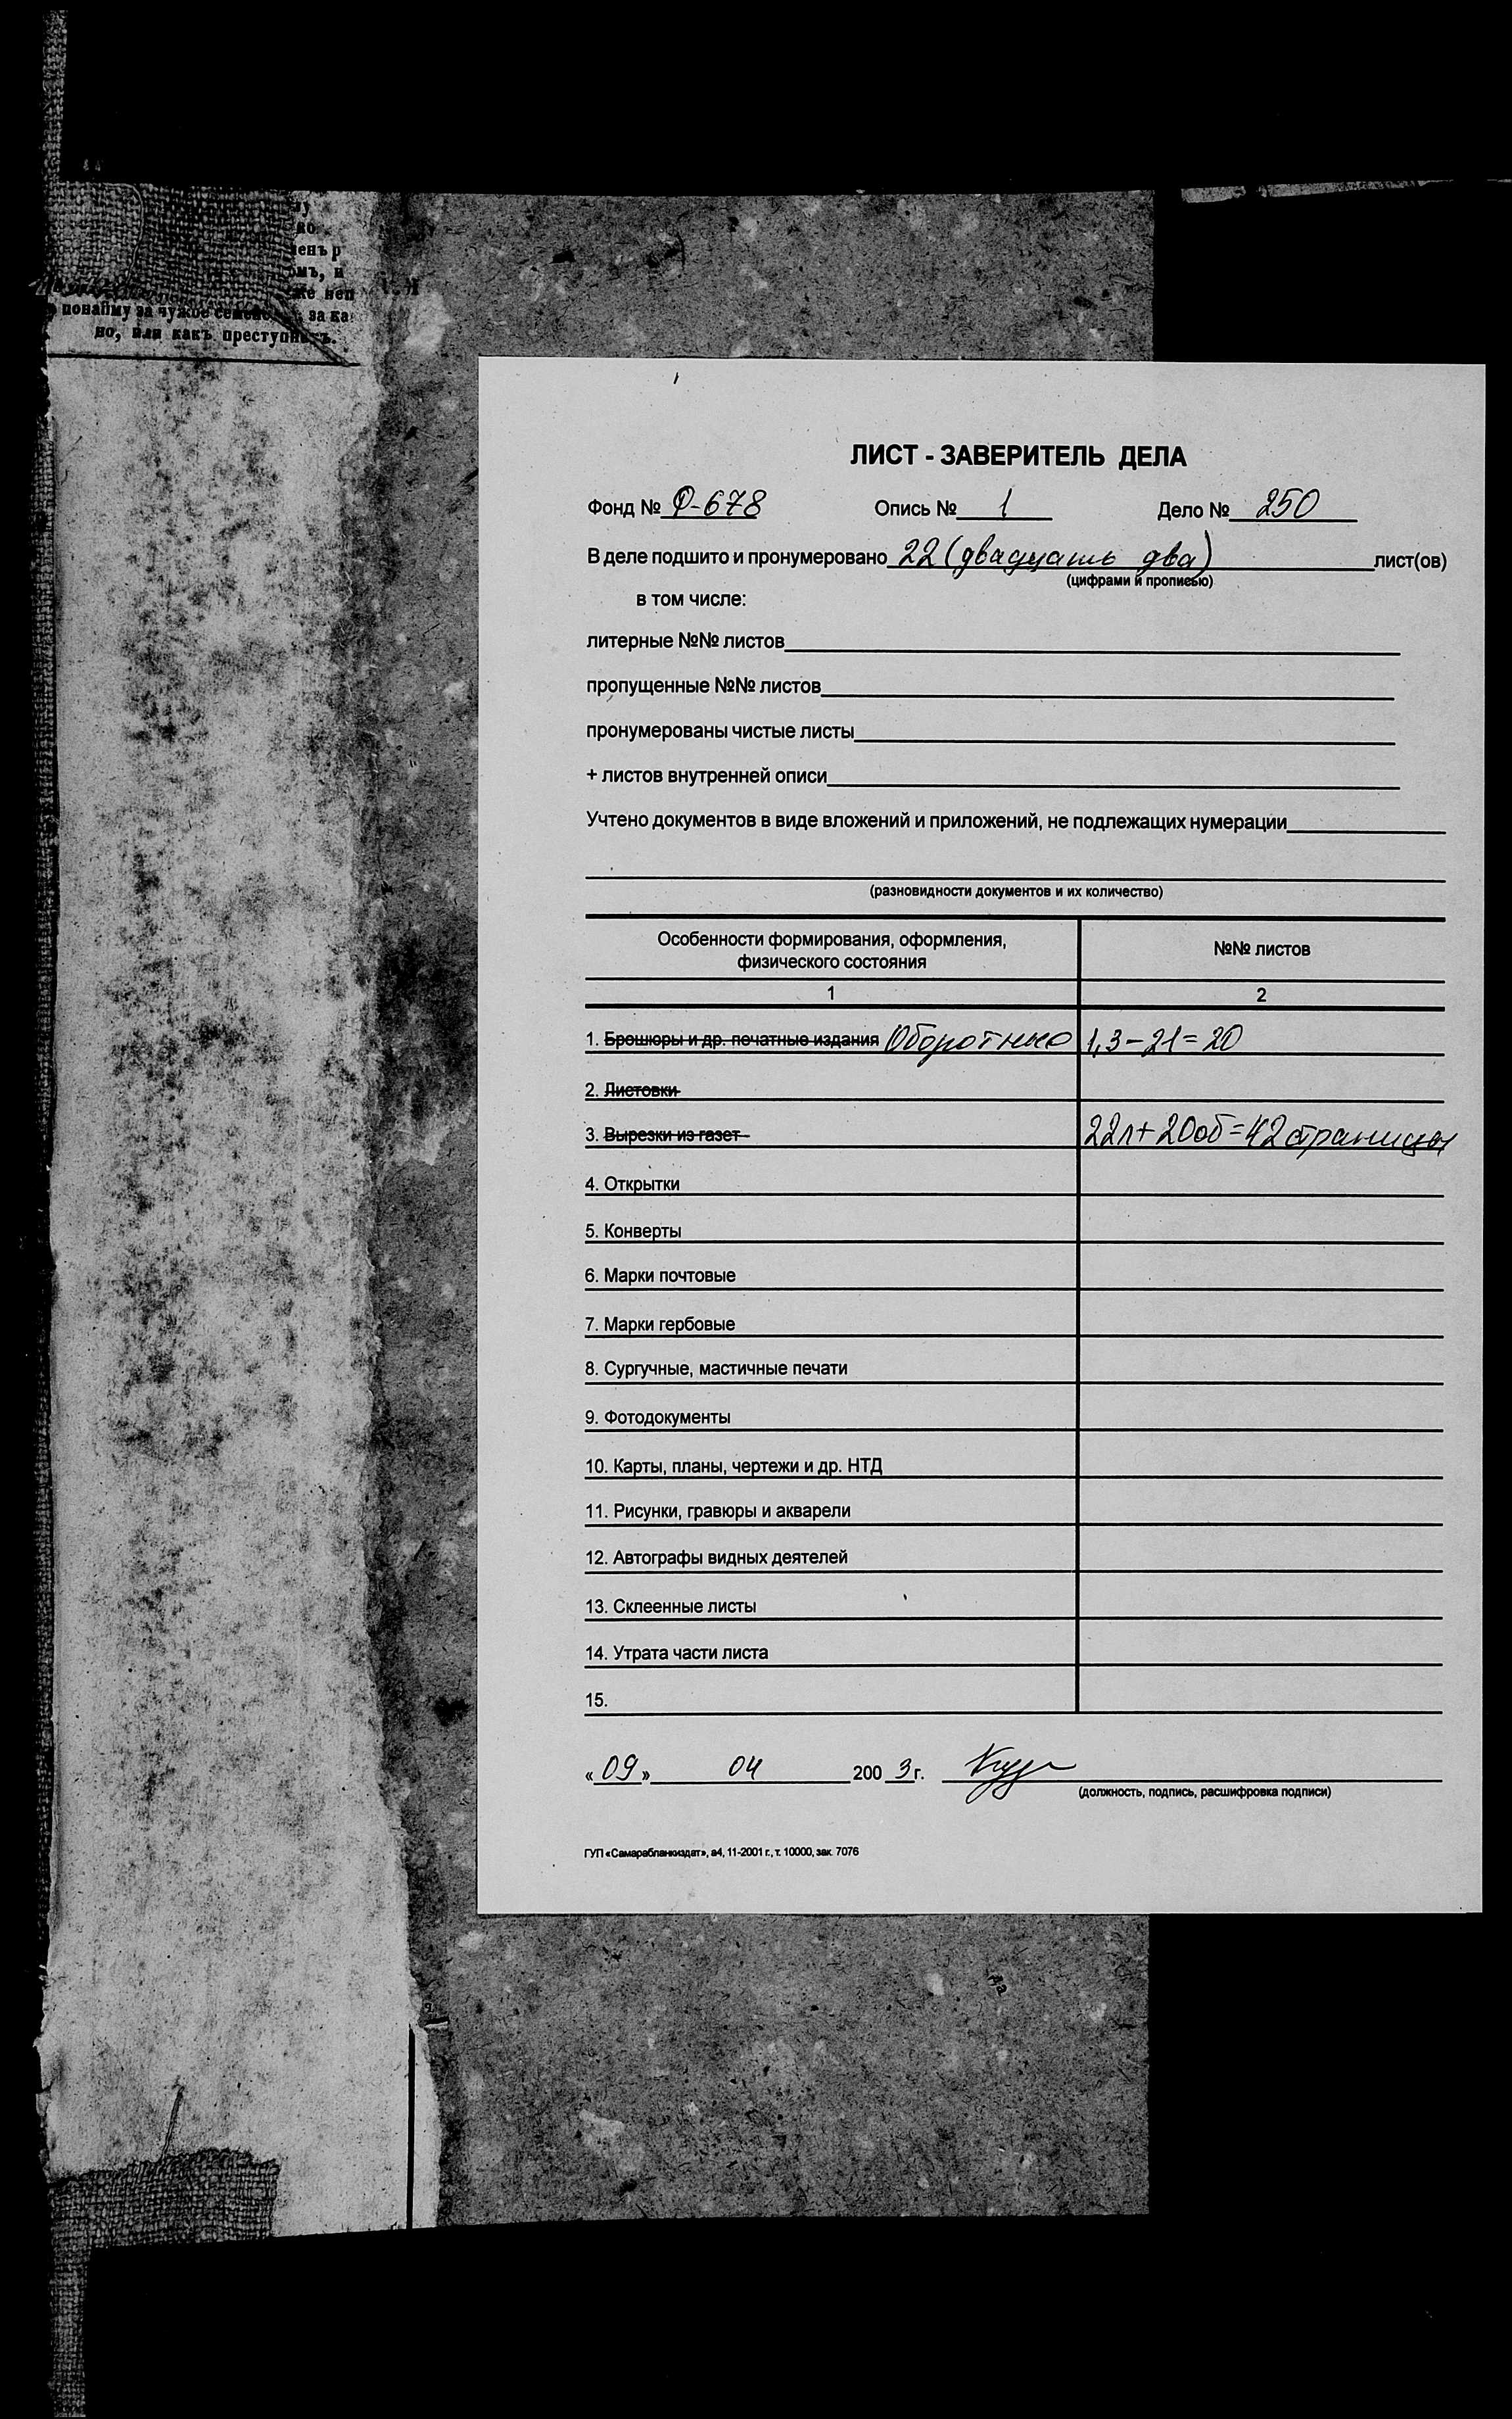 му
ко
енъ р
омъ, и
же неп
понайму за чужое семейс за ка
но, или какъ преступникъ.
ЛИСТ - ЗАВЕРИТЕЛЬ ДЕЛА
Фонд № Ф-678 Опись № 1 Дело № 250
В деле подшито и пронумеровано 22 (двадцать два) лист(ов)
(цифрами и прописью)
в том числе:
литерные №№ листов
пропущенные №№ листов
пронумерованы чистые листы
+ листов внутренней описи
Учтено документов в виде вложений и приложений, не подлежащих нумерации
(разновидности документов и их количество)
Особенности формирования, оформления, №№ листов
физического состояния
1 2
1. Брошюры и др. печатные издания Оборотные 1,3-21=20
2. Листовки
3. Вырезки из газет 22л+20об=42 страницы
4. Открытки
5. Конверты
6. Марки почтовые
7. Марки гербовые
8. Сургучные, мастичные печати
9. Фотодокументы
10. Карты, планы, чертежи и др. НТД
11. Рисунки, гравюры и акварели
12. Автографы видных деятелей
13. Склеенные листы
14. Утрата части листа
15.
«09» 04 2003 г.
(должность, подпись, расшифровка подписи)
ГУП «Самарабланкиздат», а4, 11-2001 г., т. 10000, зак. 7076